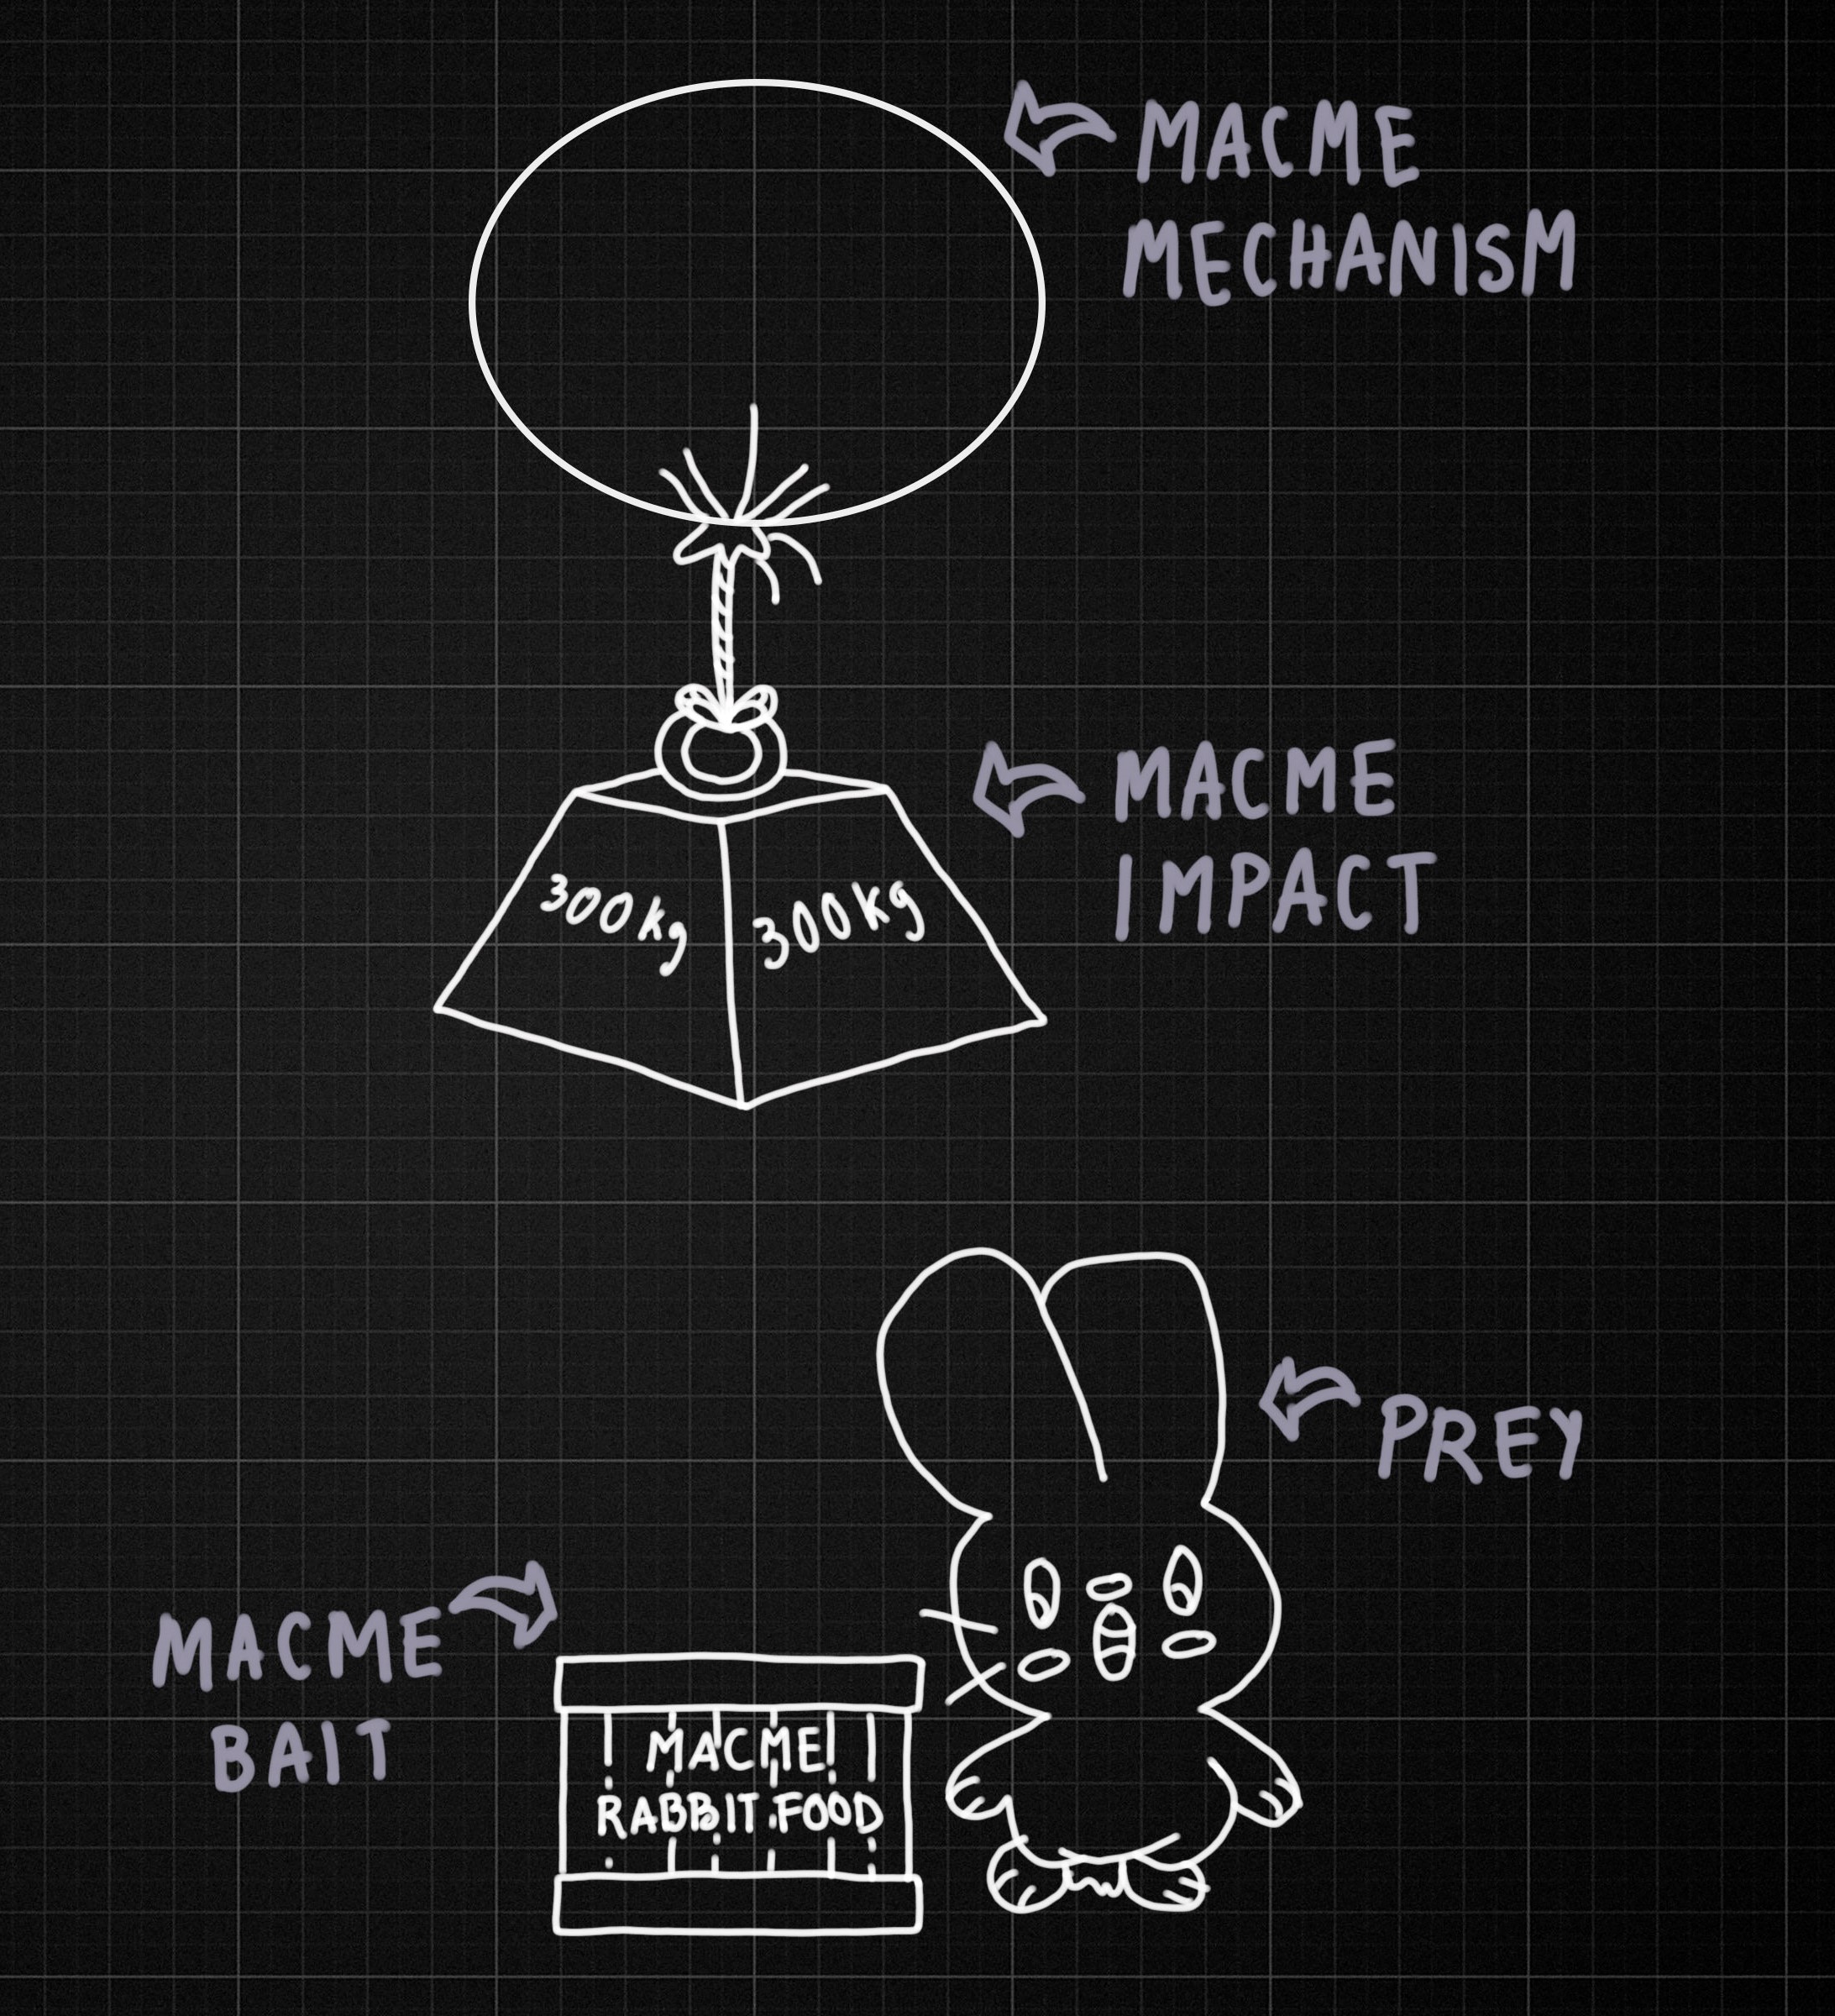 MACME
MECHANISM
MACME
IMPACT
300kg 300kg
PREY
MACME
BAIT
MACME
RABBIT FOOD